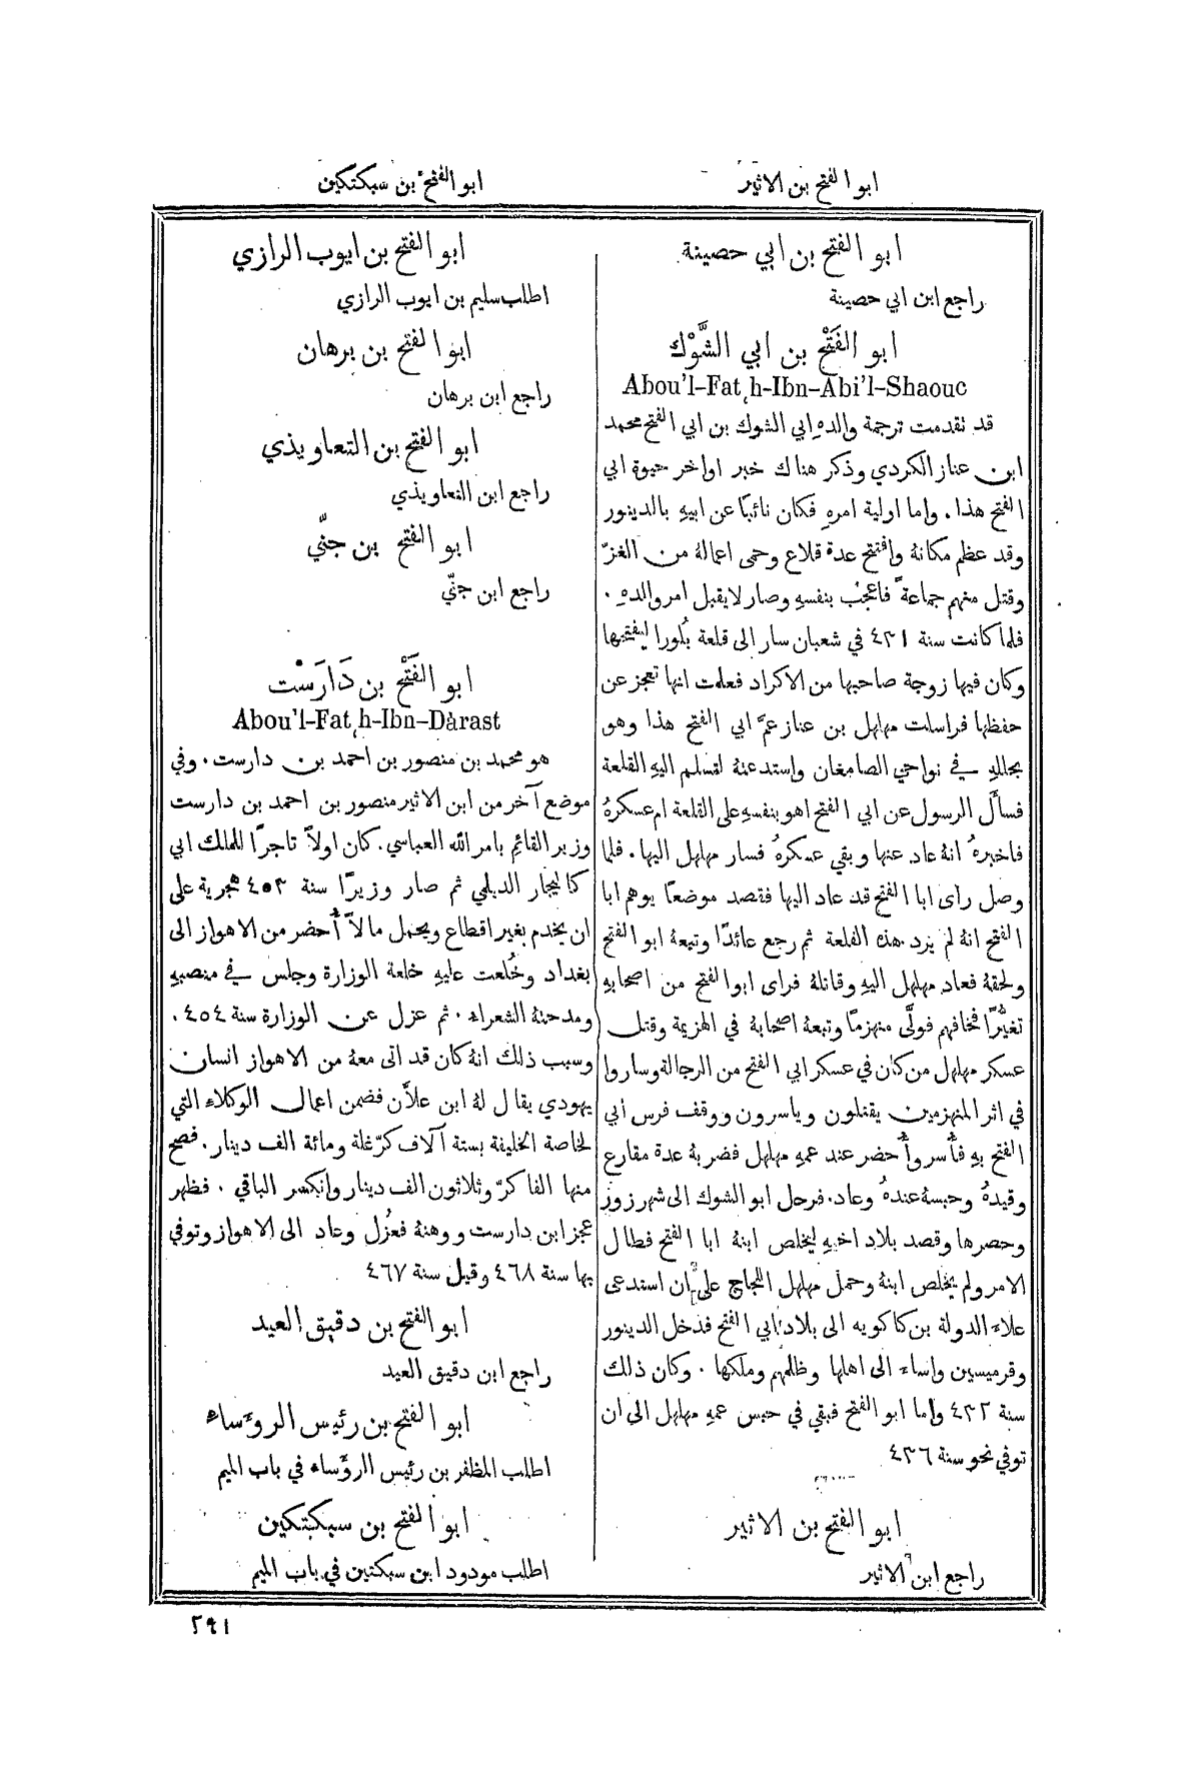 ابو الفتح بن الاثير
ابو الفتح بن سبكتكين
ابو الفتح بن ابي حصينة
راجع ابن ابي حصينة
ابو الفَتْح بن ابي الشَّوْك
Abou'l-Fat‚h-Ibn-Abi'l-Shaouc
قد تقدمت ترجمة والدهِ ابي الشوك بن ابي الفتح محمد
ابن عناز الكردي وذكر هناك خبر اواخر حيوة ابي
الفتح هذا. واما اولية امرهِ فكان نائبًا عن ابيهِ بالدينور
وقد عظم مكانهُ وافتتح عدة قلاع وحمى اعمالهُ من الغزّ
وقتل منهم جماعةً فاعجب بنفسهِ وصار لا يقبل امر والدهِ.
فلما كانت سنة ٤٣١ في شعبان سار الى قلعة بُلورا ليفتتحها
وكان فيها زوجة صاحبها من الاكراد فعلمت انها تعجز عن
حفظها فراسلت مهلهل بن عناز عمَّ ابي الفتح هذا وهو
بحللهِ في نواحي الصامغان واستدعتهُ لتسلم اليهِ القلعة
فسأَل الرسول عن ابي الفتح اهو بنفسهِ على القلعة ام عسكرهُ
فاخبرهُ انهُ عاد عنها وبقي عسكرهُ فسار مهلهل اليها. فلما
وصل راى ابا الفتح قد عاد اليها فقصد موضعًا يوهم ابا
الفتح انهُ لم يرد هذه القلعة ثم رجع عائدًا وتبعهُ ابو الفتح
ولحقهُ فعاد مهلهل اليهِ وقاتلهُ فراى ابو الفتح من اصحابهِ
تغيُّرًا فخافهم فولَّى منهزمًا وتبعهُ اصحابهُ في الهزيمة وقتل
عسكر مهلهل من كان في عسكر ابي الفتح من الرجالة وساروا
في اثر المنهزمين يقتلون وياسرون ووقف فرس أبي
الفتح بهِ فأُسر وأُحضر عند عمهِ مهلهل فضربهُ عدة مقارع
وقيدهُ وحبسهُ عندهُ وعاد. فرحل ابو الشوك الى شهرزور
وحصرها وقصد بلاد اخيهِ ليخلص ابنهُ ابا الفتح فطال
الامر ولم يخلص ابنهُ وحمل مهلهل اللجاج على ان استدعى
علاء الدولة بن كاكويه الى بلاد ابي الفتح فدخل الدينور
وقرميسين واساء الى اهلها وظلمهم وملكها. وكان ذلك
سنة ٤٣٢ واما ابو الفتح فبقي في حبس عمهِ مهلهل الى ان
توفي نحو سنة ٤٣٦
ابو الفتح بن الاثير
راجع ابن الاثير
ابو الفتح بن ايوب الرازي
اطلب سليم بن ايوب الرازي
ابو الفتح بن برهان
راجع ابن برهان
ابو الفتح بن التعاويذي
راجع ابن التعاويذي
ابو الفتح بن جنّي
راجع ابن جنّي
ابو الفَتْح بن دَارَسْت
Abou'l-Fat‚h-Ibn-Dàrast
هو محمد بن منصور بن احمد بن دارست. وفي
موضع آخر من ابن الاثير منصور بن احمد بن دارست
وزير القائم بامر الله العباسي. كان اولاً تاجرًا للملك ابي
كاليجار الديلمي ثم صار وزيرًا سنة ٤٥٣ هجرية على
ان يخدم بغير اقطاع ويحمل مالاً أُحضر من الاهواز الى
بغداد وخُلعت عليهِ خلعة الوزارة وجلس في منصبهِ
ومدحتهُ الشعراء. ثم عزل عن الوزارة سنة ٤٥٤.
وسبب ذلك انهُ كان قد اتى معهُ من الاهواز انسان
يهودي يقال لهُ ابن علاَّن فضمن اعمال الوكلاء التي
لخاصة الخليفة بستة آلاف كرّ غلة ومائة الف دينار. فصح
منها الفا كرّ وثلاثون الف دينار وانكسر الباقي. فظهر
عجز ابن دارست ووهنهُ فعُزل وعاد الى الاهواز وتوفي
بها سنة ٤٦٨ وقيل سنة ٤٦٧
ابو الفتح بن دقيق العيد
راجع ابن دقيق العيد
ابو الفتح بن رئيس الروءساء
اطلب المظفر بن رئيس الروءساء في باب الميم
ابو الفتح بن سبكتكين
اطلب مودود ابن سبكتين في باب الميم
٢٩١